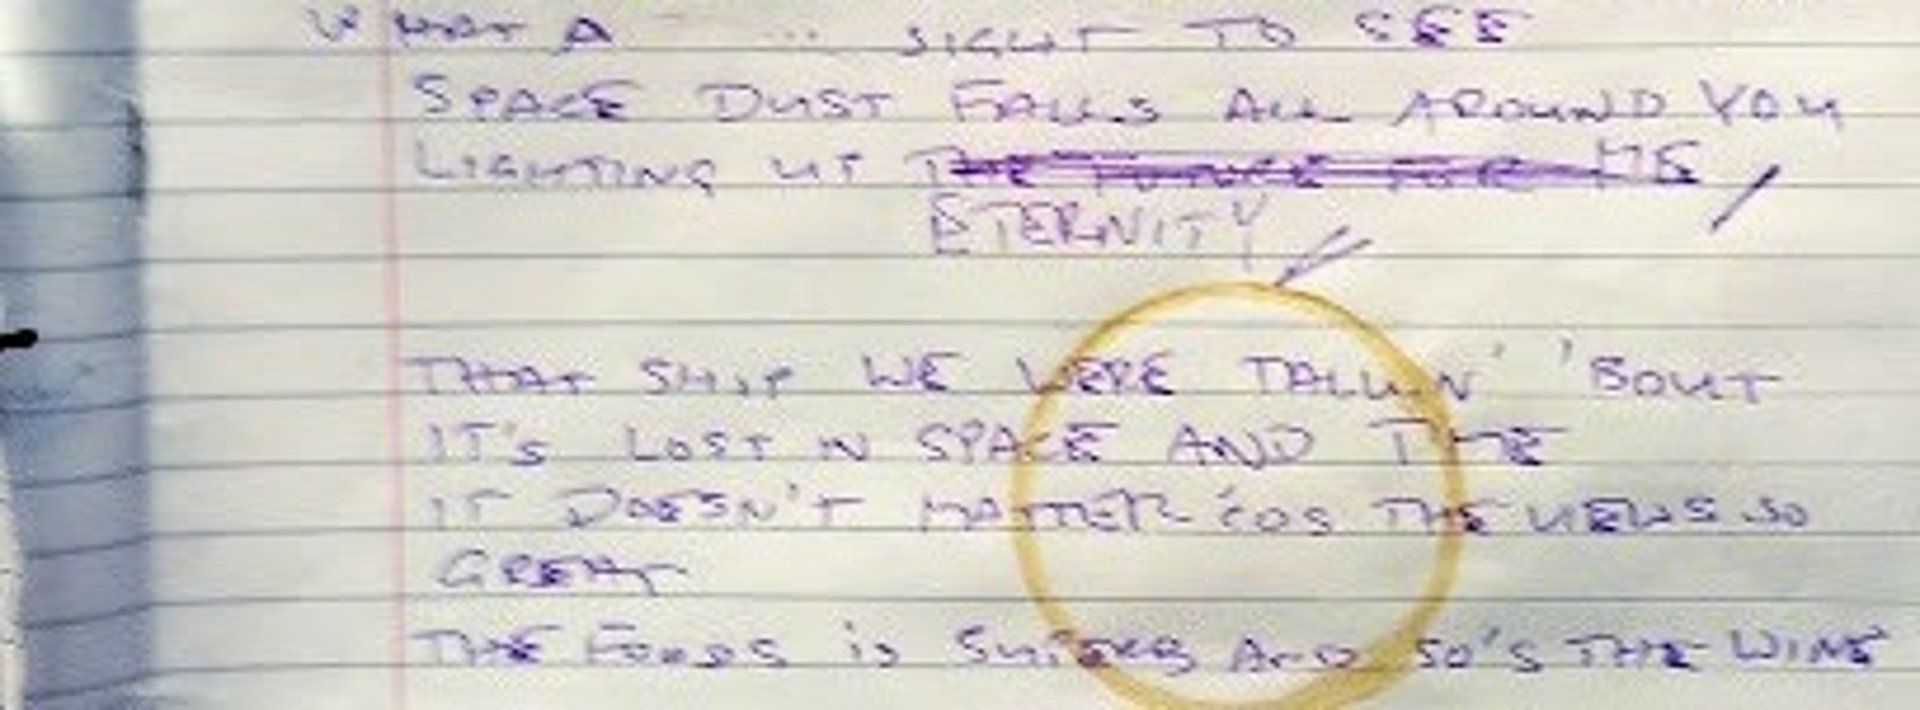 WHAT A ... SIGHT TO SEE
SPACE DUST FALLS ALL AROUND YOU
LIGHTING UP THE FOR ME
ETERNITY
THAT SHIP WE WERE TALKIN' 'BOUT
IT'S LOST IN SPACE AND TIME
IT DOESN'T MATTER 'COS THE VIEWS SO
GREAT
THE FOODS is SUPERB AND SO'S THE WINE